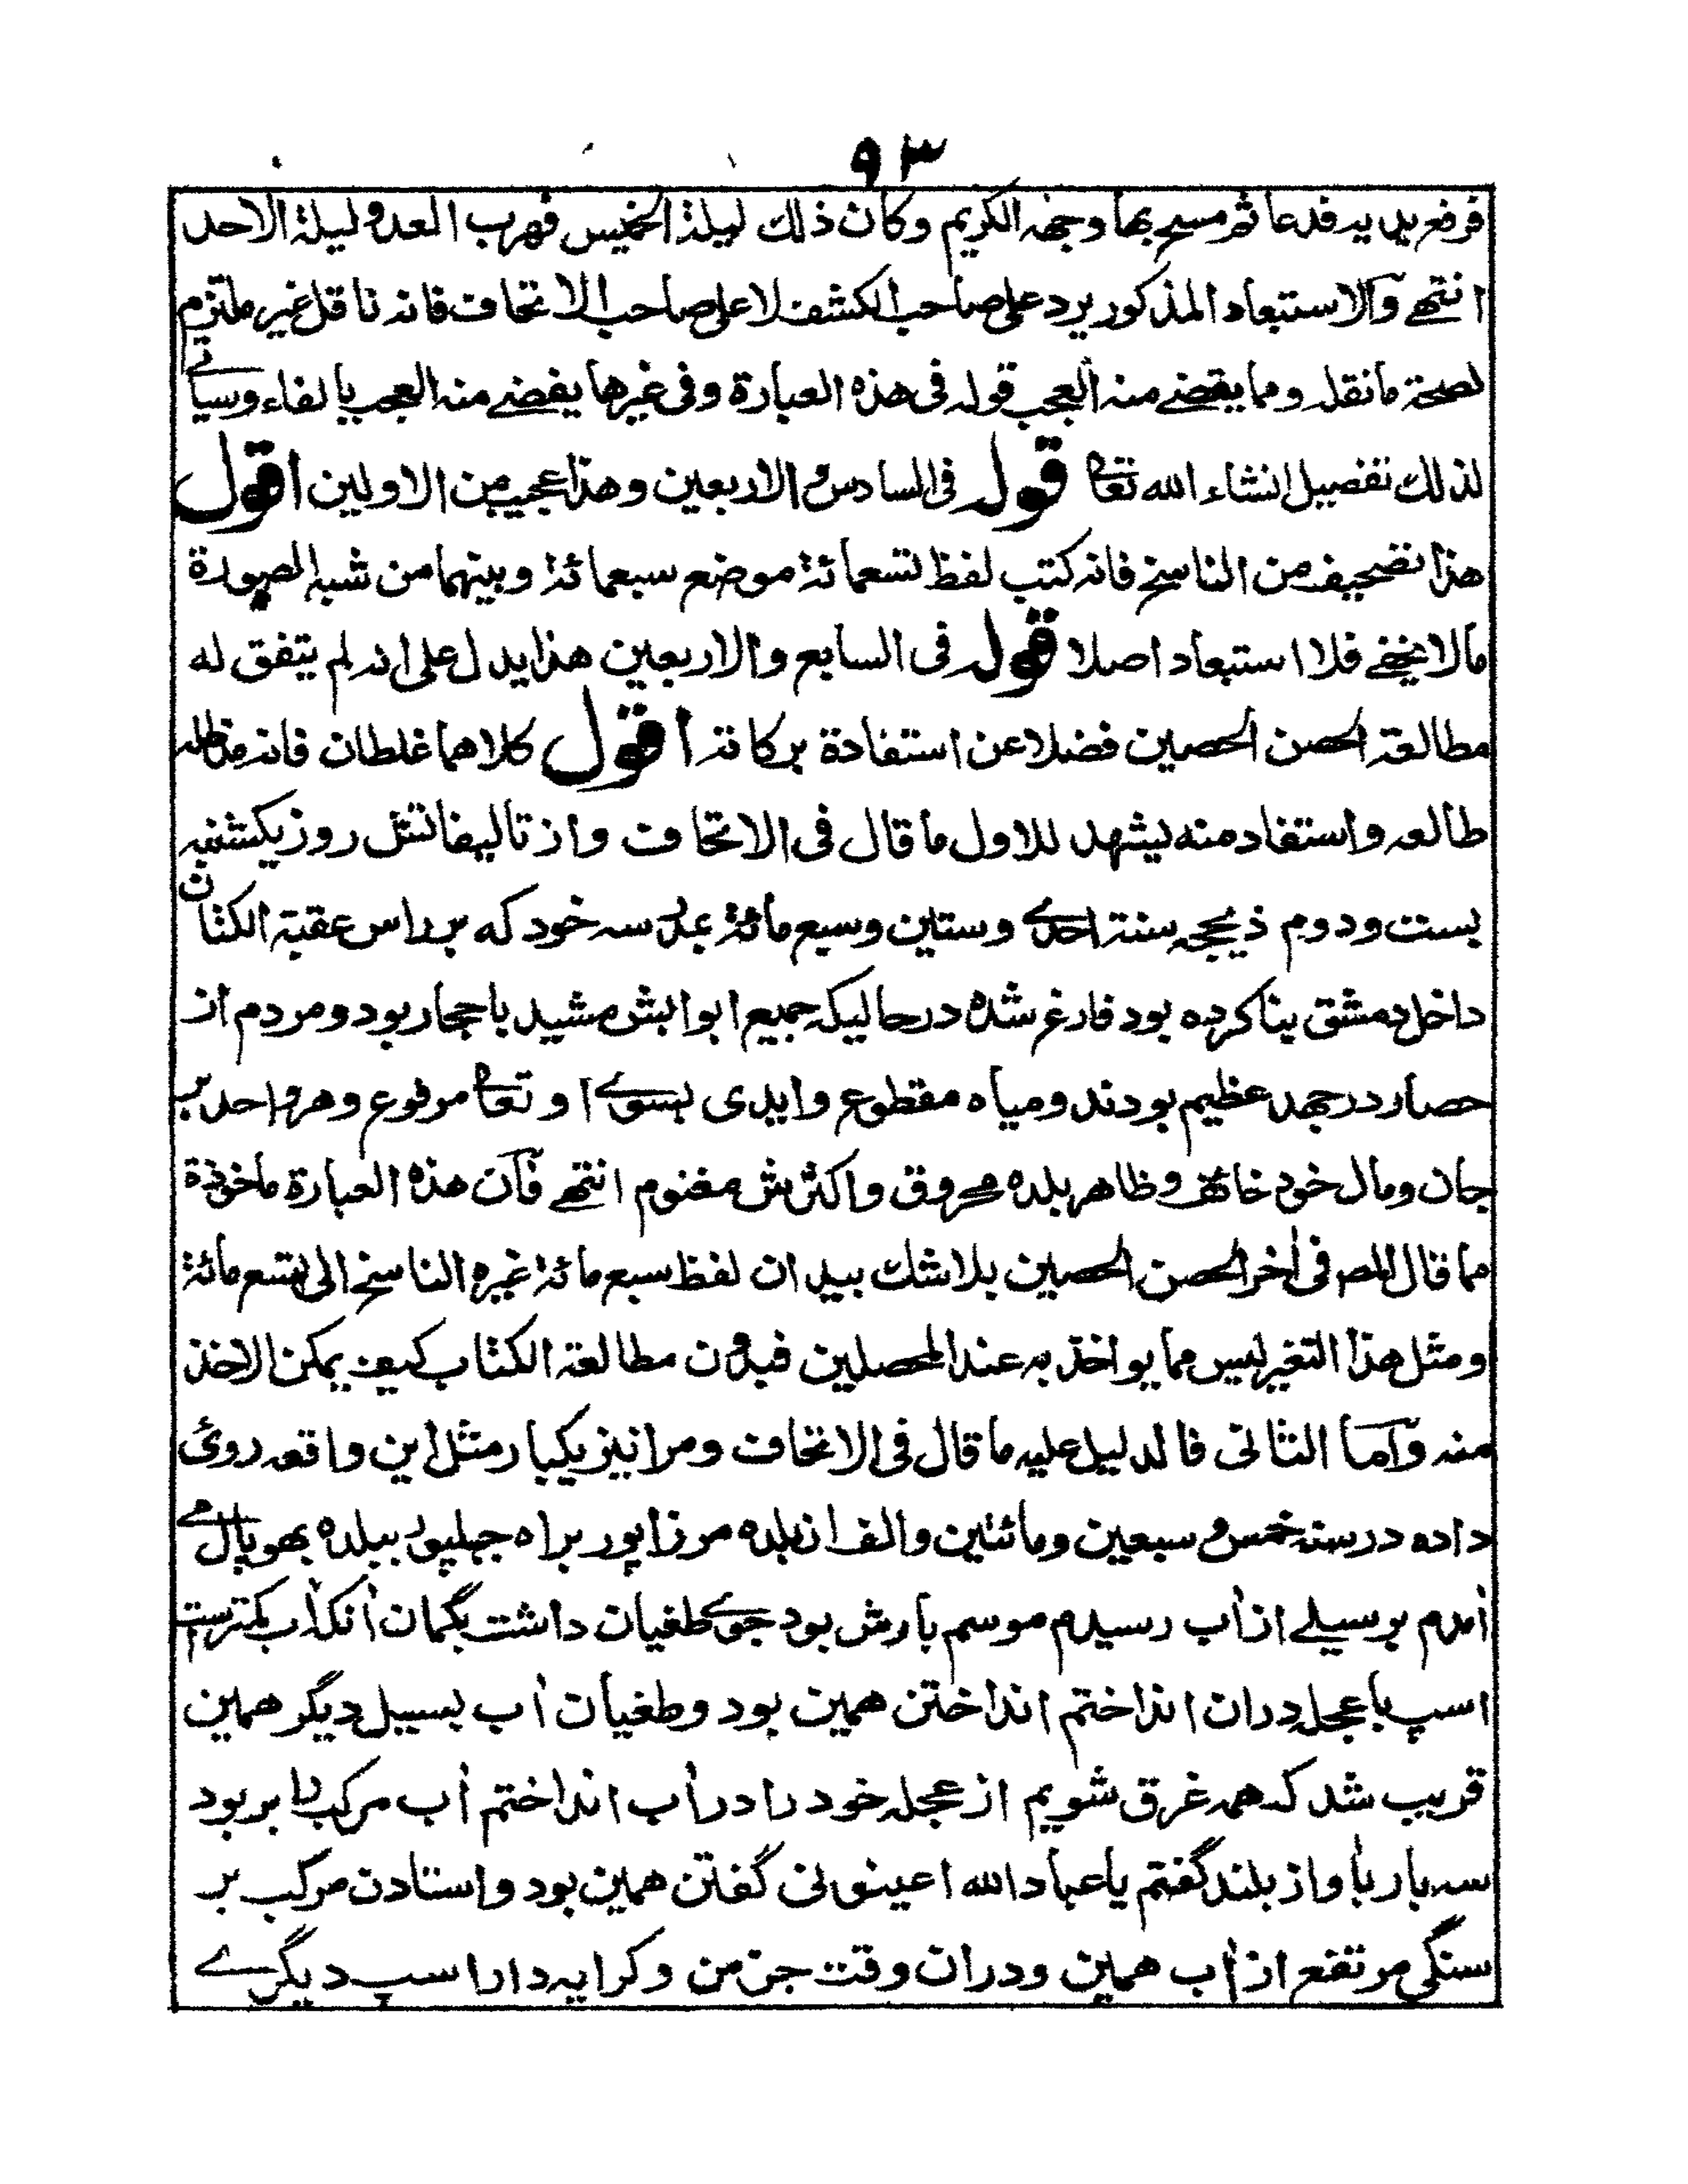 ٩٣
فرفع يديه فدعا ثم مسح بهما وجهه الكريم وكان ذلك ليلة الخميس فهرب العدو ليلة الاحد
انتهے وآلاستبعاد المذكور يرد على صاحب الكشف لا على صاحب الاتحاف فانه ناقل غير ملتزم
لصحة ما نقله ومما يقضے منه العجب قوله فى هذه العبارة وفى غيرها يفضے منه العجب بالفاء وسياتے
لذلك تفصيل انشاء الله تعا قوله فى السادس والاربعين وهذا عجيب من الاولين اقول
هذا تصحيف من الناسخ فانه كتب لفظ تسعمائة موضع سبعمائة وبينهما من شبه الصورة
مالا يخفے فلا استبعاد اصلا قوله فى السابع والاربعين هذا يدل على انه لم يتفق له
مطالعة الحصن الحصين فضلا عن استفادة بركاته اقول كلاهما غلطان فانه مد ظله
طالعه واستفاد منه يشهد للاول ما قال فى الاتحاف واز تاليفاتش روز يكشنبه
بست ودوم ذيحجه سنة احدے وستين وسبع مائة بمدرسه خود كه بر راس عقبة الكتان
داخل دمشق بنا كرده بود فارغ شده درحاليكه جميع ابوابش مشيد باحجار بود ومردم از
حصار درجهد عظيم بودند ومياه مقطوع وايدى بسوے او تعا مرفوع وهر واحد بر
جان ومال خود خائف وظاهر بلده محروق واكثرش مغنوم انتهے فآن هذه العبارة ماخوذة
مما قال المصـ فى اٰخر الحصن الحصين بلاشك بيد ان لفظ سبع مائة غيره الناسخ الى تسع مائة
ومثل هذا التغير ليس مما يواخذ به عند المحصلين فبدون مطالعة الكتاب كيف يمكن الاخذ
منه وآما الثانى فالدليل عليه ما قال فى الاتحاف ومرا نيز يكبار مثل اين واقعه روئ
داده درسنه خمس وسبعين ومائتين والف از بلده مرزاپور براه جبلپور ببلده بهوپال مے
اٰمدم بر سيلے از اٰب رسيدم موسم بارش بود جوے طغيان داشت بگمان اٰنكه اٰب كمترست
اسپ با عجله دران انداختم انداختن همين بود وطغيان اٰب بسبيل ديگر همين
قريب شد كه همه غرق شويم از عجله خود را در اٰب انداختم اٰب مركب را بر بود
سه بار باٰواز بلند گفتم يا عباد الله اعينونى گفتن همين بود واستادن مركب بر
سنگى مرتفع از اٰب همين ودران وقت جز من وكرايه دار اسپ ديگرے